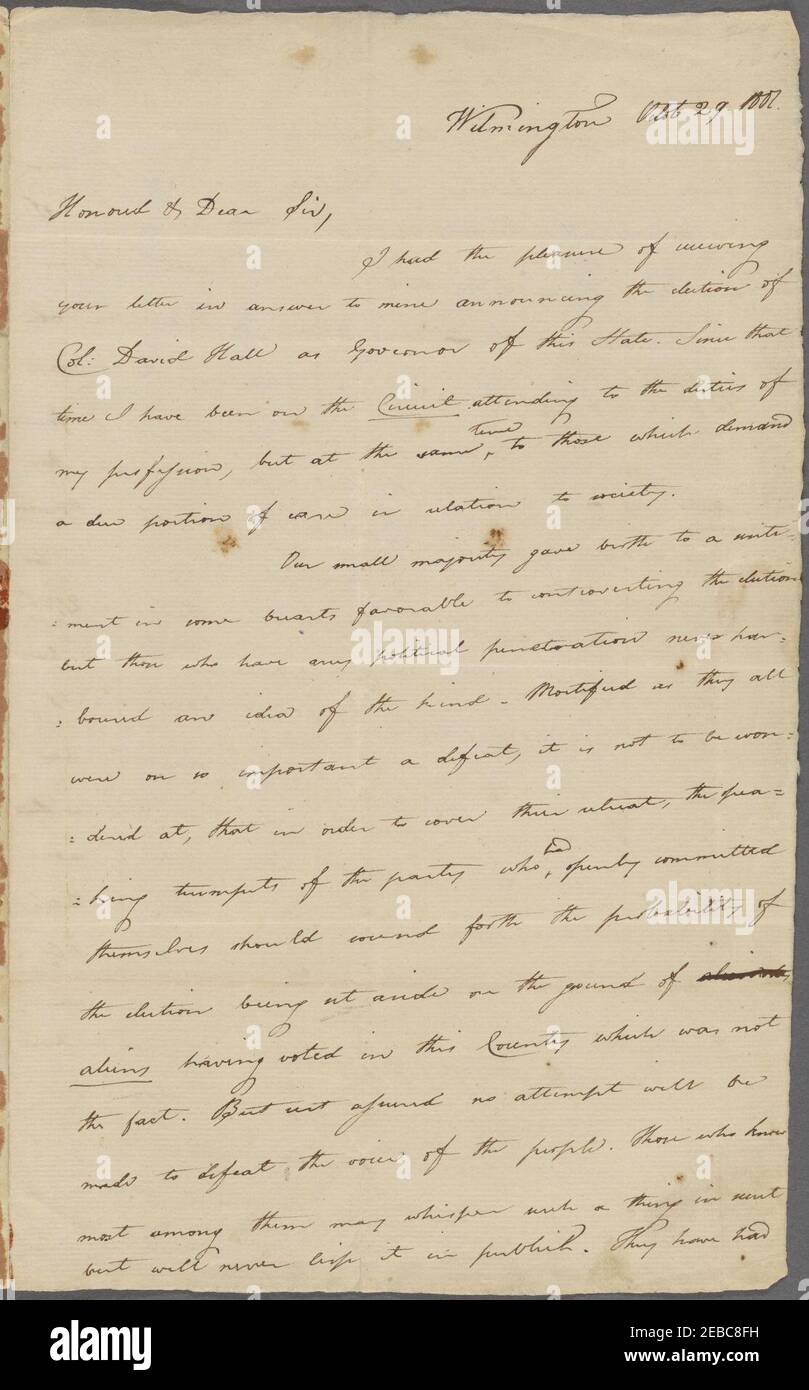 Wilmington Octob 29 1801.
Honoured & Dear Sir,
I had the pleasure of receiving
your letter in answer to mine announcing the election of
Col: David Hall as Governor of this State. Since that
time I have been on the Circuit attending to the duties of
my profession, but at the same time, to those which demand
a due portion of care in relation to society.
Our small majority gave birth to a senti-
=ment in some breasts favorable to controverting the election
but those who have any political penetration never har-
=boured an idea of the kind - Mortified as they all
were on so important a defeat, it is not to be won=
=dered at, that in order to cover their retreat, the spea=
=king trumpets of the party who had openly committed
themselves should sound forth the probability of
the election being set aside on the ground of
aliens having voted in this County which was not
the fact. But rest assured no attempt will be
made to defeat the voice of the people. Those who know
most among them may whisper such a thing in secret
but will never lisp it in publick. They have had
alamy
Image ID: 2EBC8FH
www.alamy.com